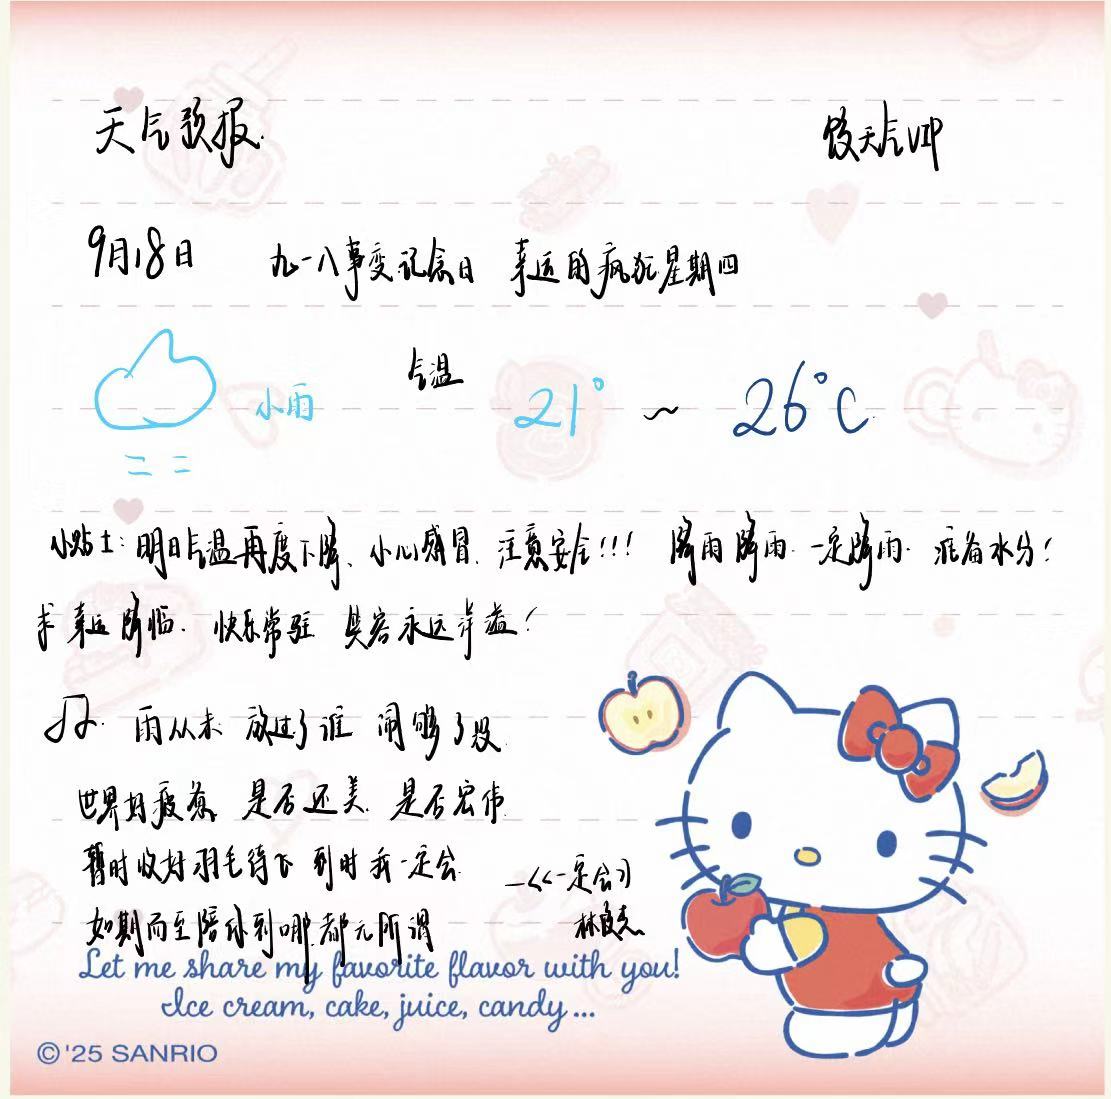 天气预报.
天气VIP
9月18日 九一八事变纪念日 幸运的疯狂星期四
小雨 气温 21° ~ 26°C
小贴士: 明日气温再度下降、小心感冒. 注意安全!!! 降雨降雨. 一定降雨. 水分!
求幸运降临. 快乐常驻 笑容永远洋溢!
雨从未 放过了谁 闹够了没
世界好疲惫 是否还美. 是否宏伟
暂时收好羽毛待飞 到时我一定会
如期而至陪你到哪都无所谓
—《一定会》
林
Let me share my favorite flavor with you!
Ice cream, cake, juice, candy...
©'25 SANRIO